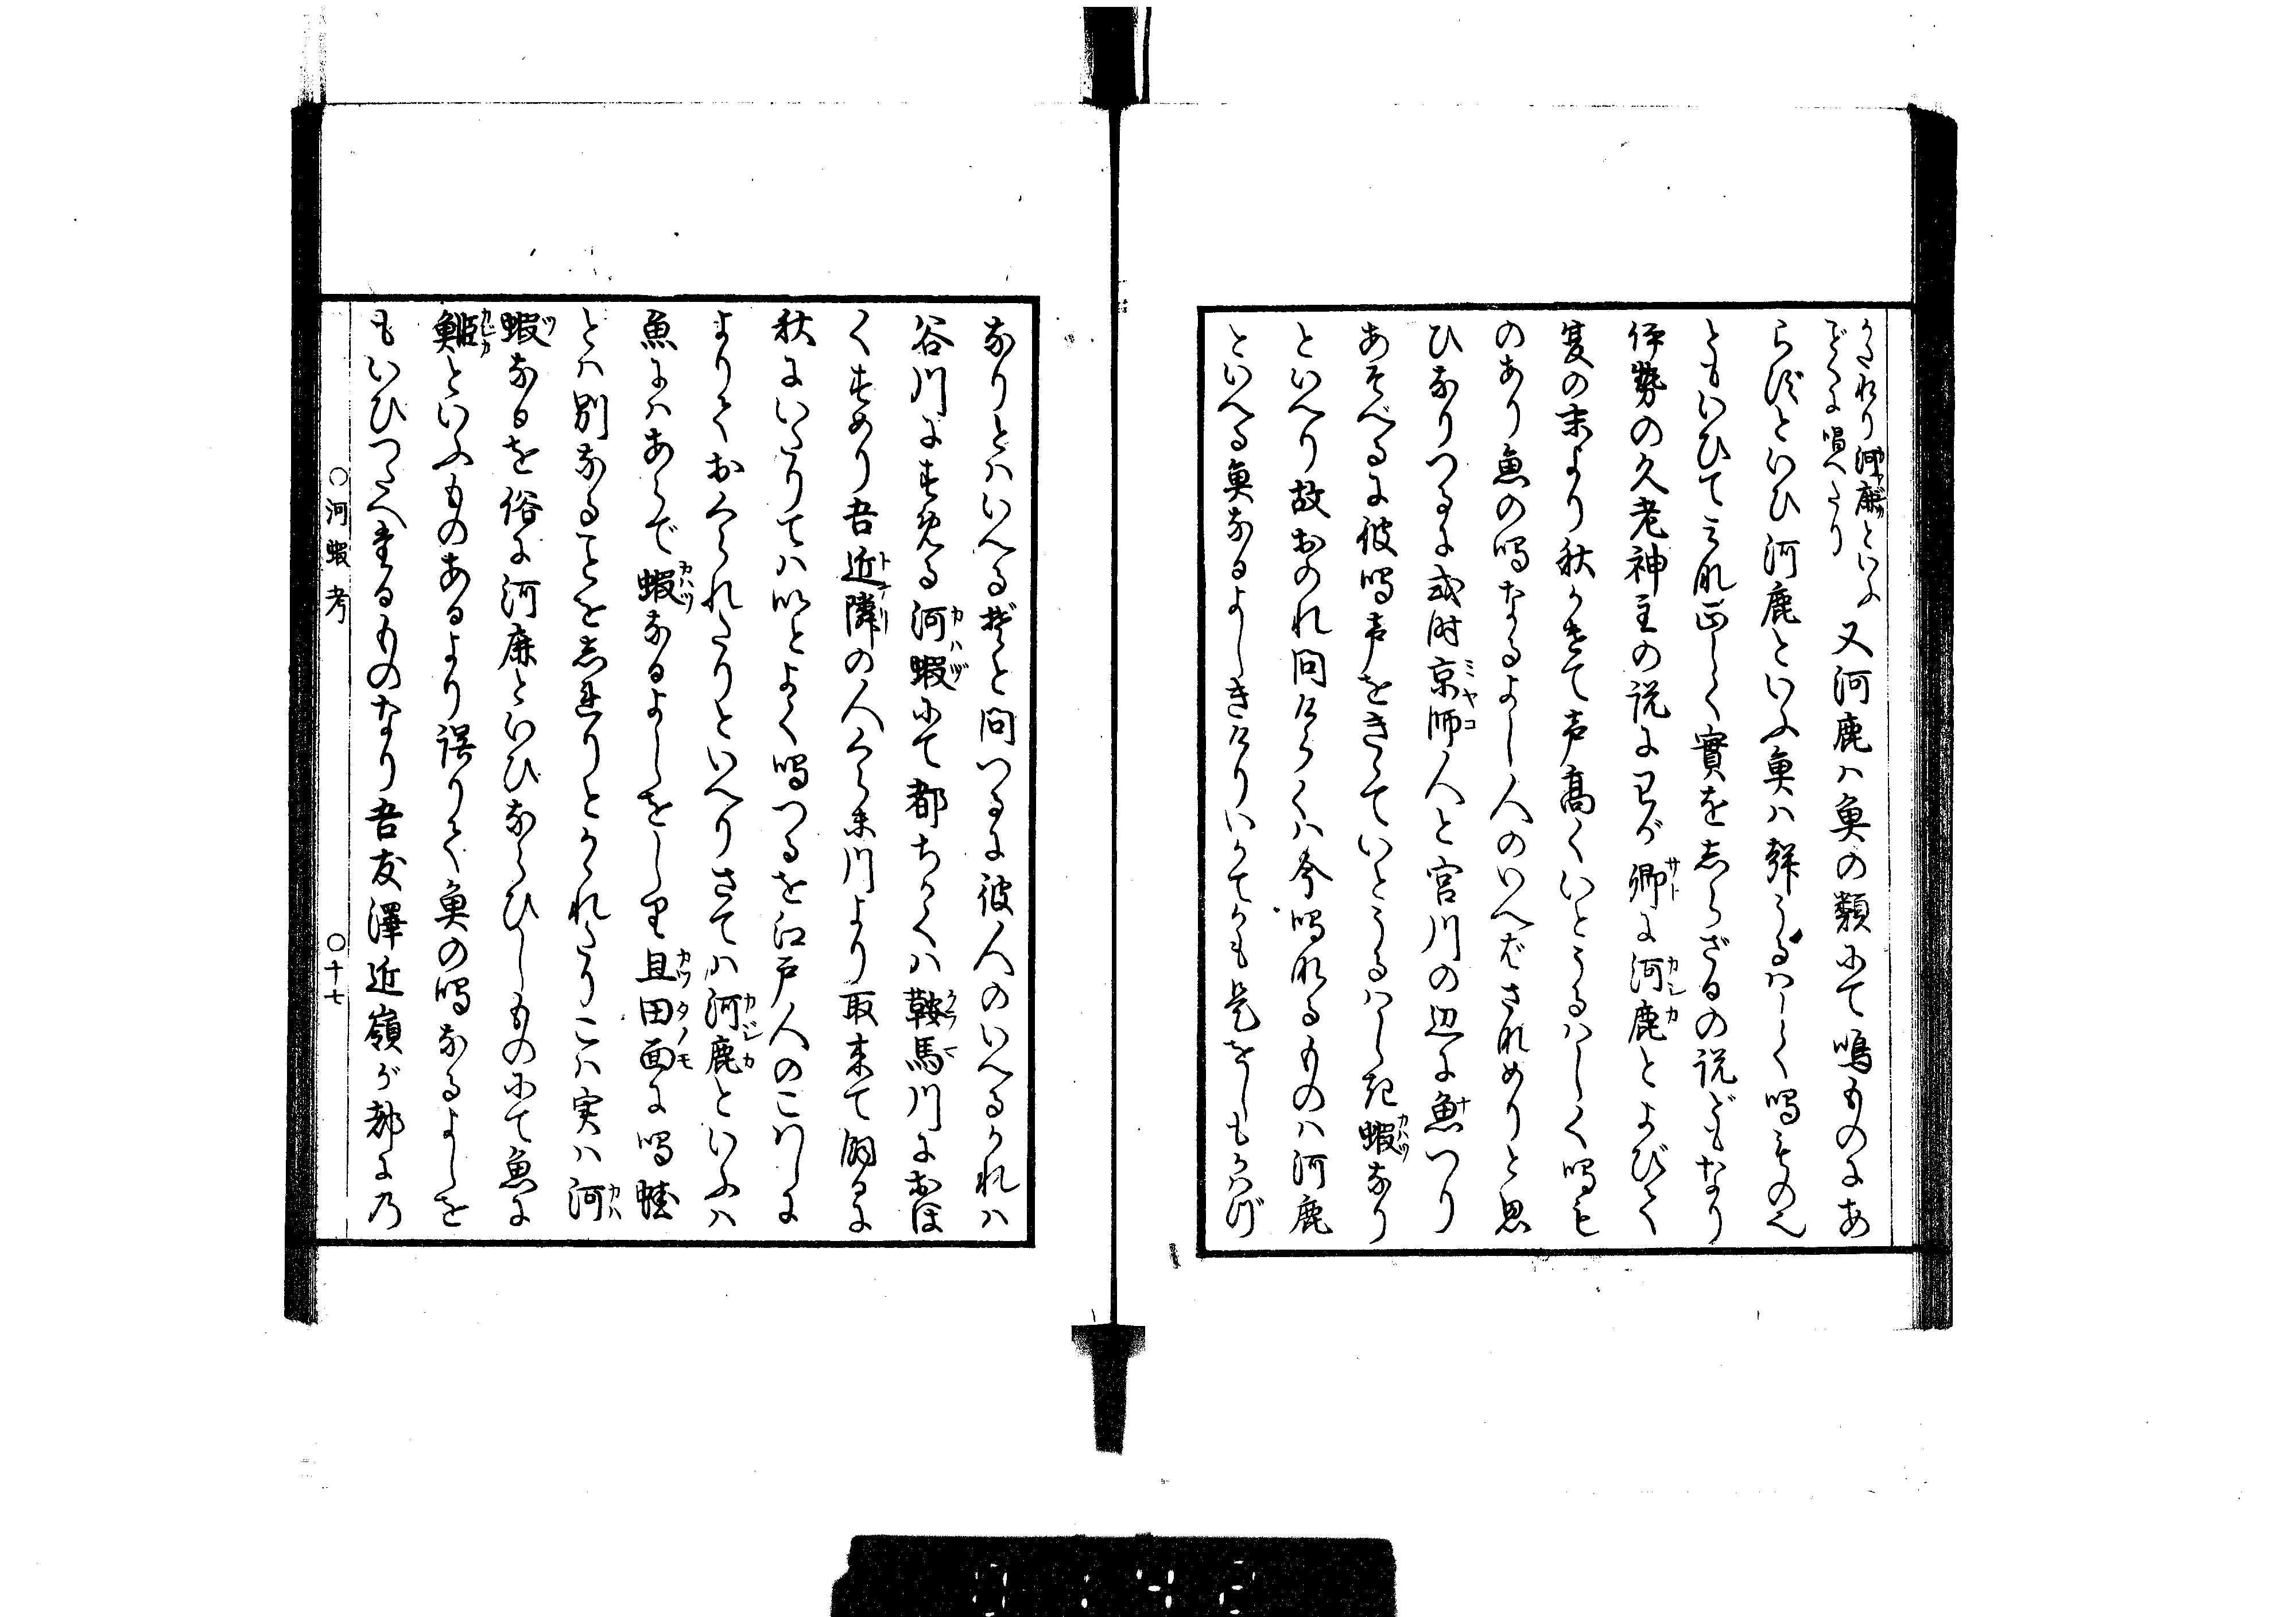 かされり河鹿といふ
どくに唱へたり
又河鹿ハ魚の類にて鳴ものにあ
らずといひ河鹿といふ魚ハ聲うるハしく鳴ものと
ともいひて之れ正しく實をしらざるの説どもなり
伊勢の久老神主の説に己が郷に河鹿とよびて
夏の末より秋かけて声高くいとうるハしく鳴も
のあり魚の鳴なるよし人のいへばされめりと思
ひなりつるに或時京師人と宮川の辺に魚つり
あそべるに彼鳴声をきゝていとうるハしき蝦なり
といへり故おのれ問けらくハ今鳴れるものハ河鹿
といへる魚なるよしきけりいかでかも是をしもかはづ
なりとハいへるぞと問つるに彼人のいへるかれハ
谷川にすめる河蝦にて都ちかくハ鞍馬川におほ
くすめり吾近隣の人くらま川より取来て飼るに
秋にいたりてハいとよく鳴つるを江戸人のこハしに
よりておくられたりといへりさてハ河鹿といふハ
魚にハあらで蝦なるよしをしり且田面に鳴蛙
とハ別なることをしれりとかゝれたりこハ実ハ河
蝦なるを俗に河鹿といひならひしものにて魚に
鮔魚といふものあるより誤りて魚の鳴なるよしを
もいひつたへ来るものなり吾友澤近嶺が都に乃
○河蝦考
○十七